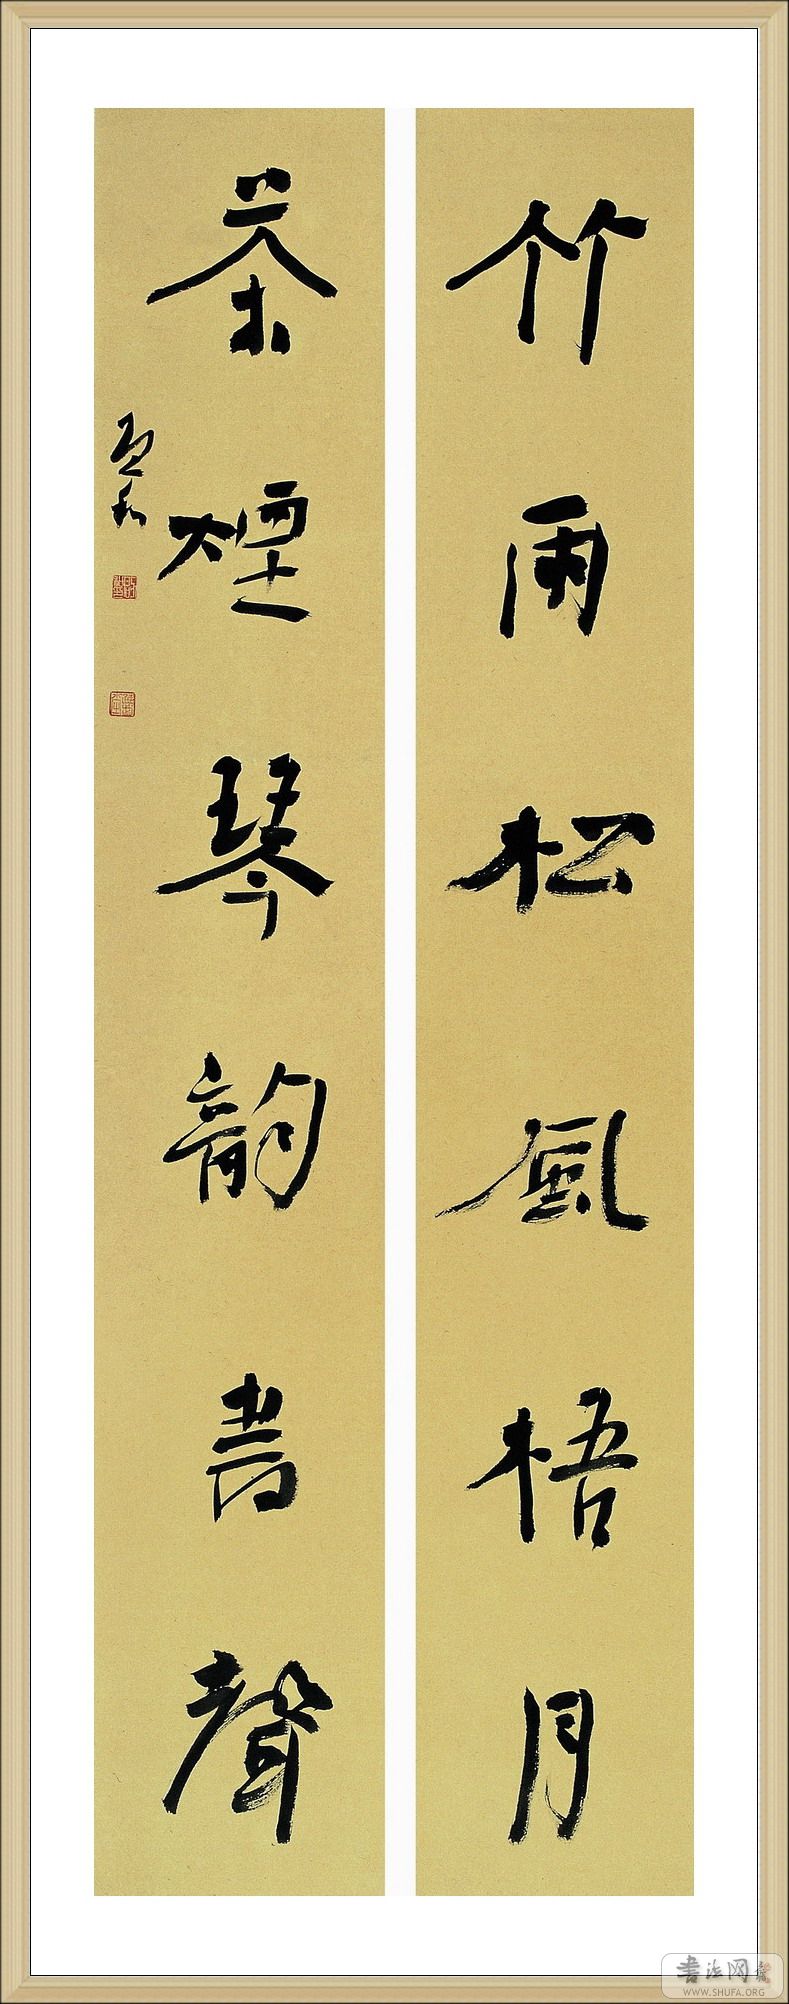 竹雨松風梧月
茶煙琴韵書聲
書法网
WWW.SHUFA.ORG